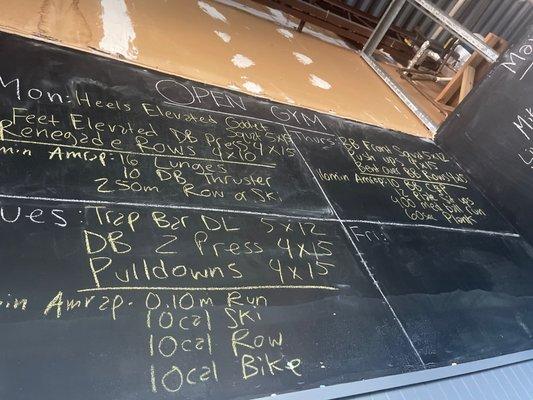 OPEN GYM
Mon: Heels Elevated Goblet Squat 5x15
Feet Elevated DB Press 4x15
Renegade Rows 4x10
min Amrap: 16 Lunges
10 DB Thruster
250m Row or Ski
ues: Trap Bar DL 5x12
DB Z Press 4x15
Pulldowns 4x15
in Amrap. 0.10m Run
10cal Ski
10cal Row
10cal Bike
Thurs: BB Front Squat 5x12
Push ups 4x15
Bent over BB Rows
10min Amrap: 18 BB
12 Sit ups
400 Med Ball Run
60sec Plank
Fri:
Ma
Mi